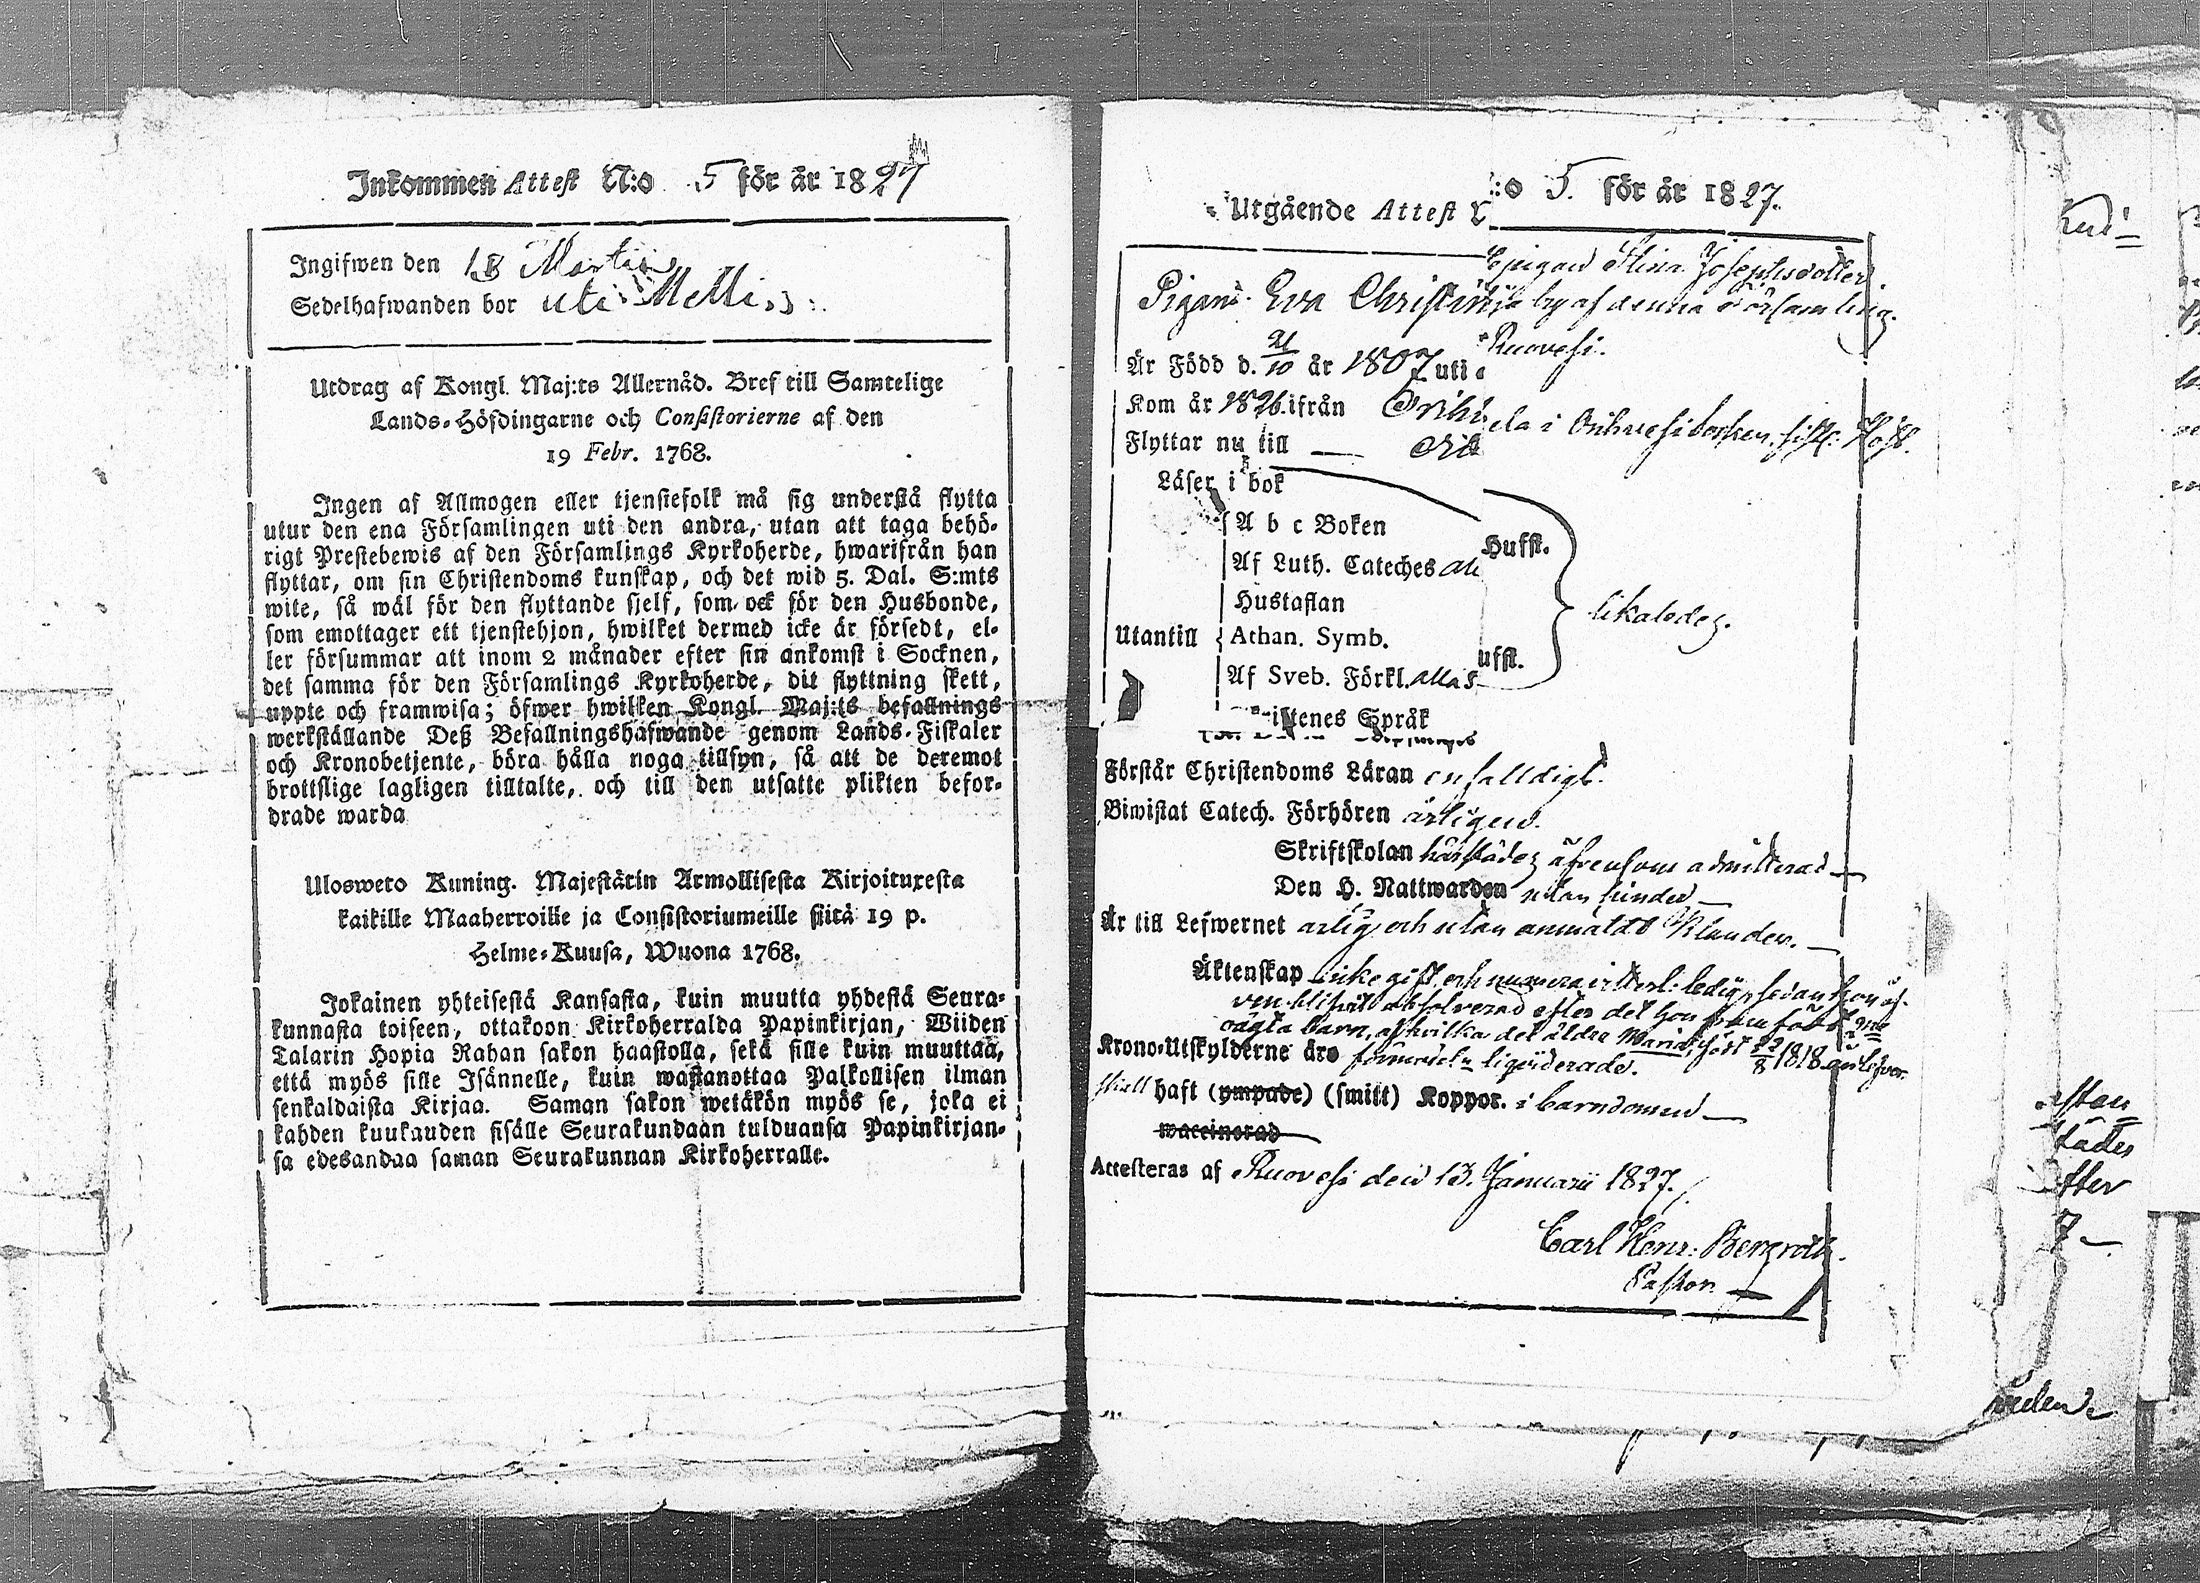 Inkommen Attest N:o 5 för år 1827
Ingifwen den 18 Martii
Sedelhafwanden bor uti Melli
Utdrag af Kongl. Maj:ts Allernåd. Bref till Samtelige
Lands-Höfdingarne och Consistorierne af den
19 Febr. 1768.
Ingen af Allmogen eller tjenstefolk må sig understå flytta
utur den ena Församlingen uti den andra, utan att taga behö-
rigt Prestebewis af den Församlings Kyrkoherde, hwarifrån han
flyttar, om sin Christendoms kunskap, och det wid 5. Dal. S:mts
wite, så wäl för den flyttande sjelf, som ock för den Husbonde,
som emottager ett tjenstehjon, hwilket dermed icke är försedt, el-
ler försummar att inom 2 månader efter sin ankomst i Socknen,
det samma för den Församlings Kyrkoherde, dit flyttning skett,
uppte och framwisa; öfwer hwilken Kongl. Maj:ts befallnings
werkställande Deß Befallningshafwande genom Lands-Fiskaler
och Kronobetjente, böra hålla noga tillsyn, så att de deremot
brottslige lagligen tilltalte, och till den utsatte plikten befor-
drade warda
Ulosweto Kuning. Majestätin Armollisesta Kirjoituxesta
kaikille Maaherroille ja Consistoriumeille siitä 19 p.
Helme-Kuusa, Wuona 1768.
Jokainen yhteisestä Kansasta, kuin muutta yhdestä Seura-
kunnasta toiseen, ottakoon Kirkoherralda Papinkirjan, Wiiden
Talarin Hopia Rahan sakon haastolla, sekä sille kuin muuttaa,
että myös sille Isännelle, kuin wastanottaa Palkollisen ilman
senkaldaista Kirjaa. Saman sakon wetäkön myös se, joka ei
kahden kuukauden sisälle Seurakundaan tulduansa Papinkirjan-
sa edesandaa saman Seurakunnan Kirkoherralle.
Utgående Attest :o 5. för år 1827.
Stina Josephsdotter
Pigan Eva Christin by af denna Församling.
Är Född d. 21/10 år 1807 uti Ruovesi.
Kom år 1826 ifrån Orihi
Flyttar nu till
Läser i bok
A b c Boken
Af Luth. Cateches all Hufst.
Hustaflan
Utantill Athan. Symb. likaledes.
Af Sveb. Förkl. alla 5 ufst.
Skriftenes Språk
Förstår Christendoms Läran enfalldigt.
Biwistat Catech. Förhören årligen.
Skriftskolan härstädes äfvensom admitterad
Den H. Nattwarden utan hinder
Är till Lefwernet ärlig och utan anmäldt Klander.
Äktenskap icke gift och numera ledig, sedan hon äf-
ven blifvit absolverad efter det hon framfödt 2ne
oägta barn, af hvilka det äldre Maria, född 22/8 1818 än lefver.
Krono-Utskylderne äro liqviderade.
haft (ympade) (smitt) Koppor. i barndomen
waccinerad
Attesteras af Ruovesi den 13. Januarii 1827.
Carl Henr: Bergroth.
Pastor.